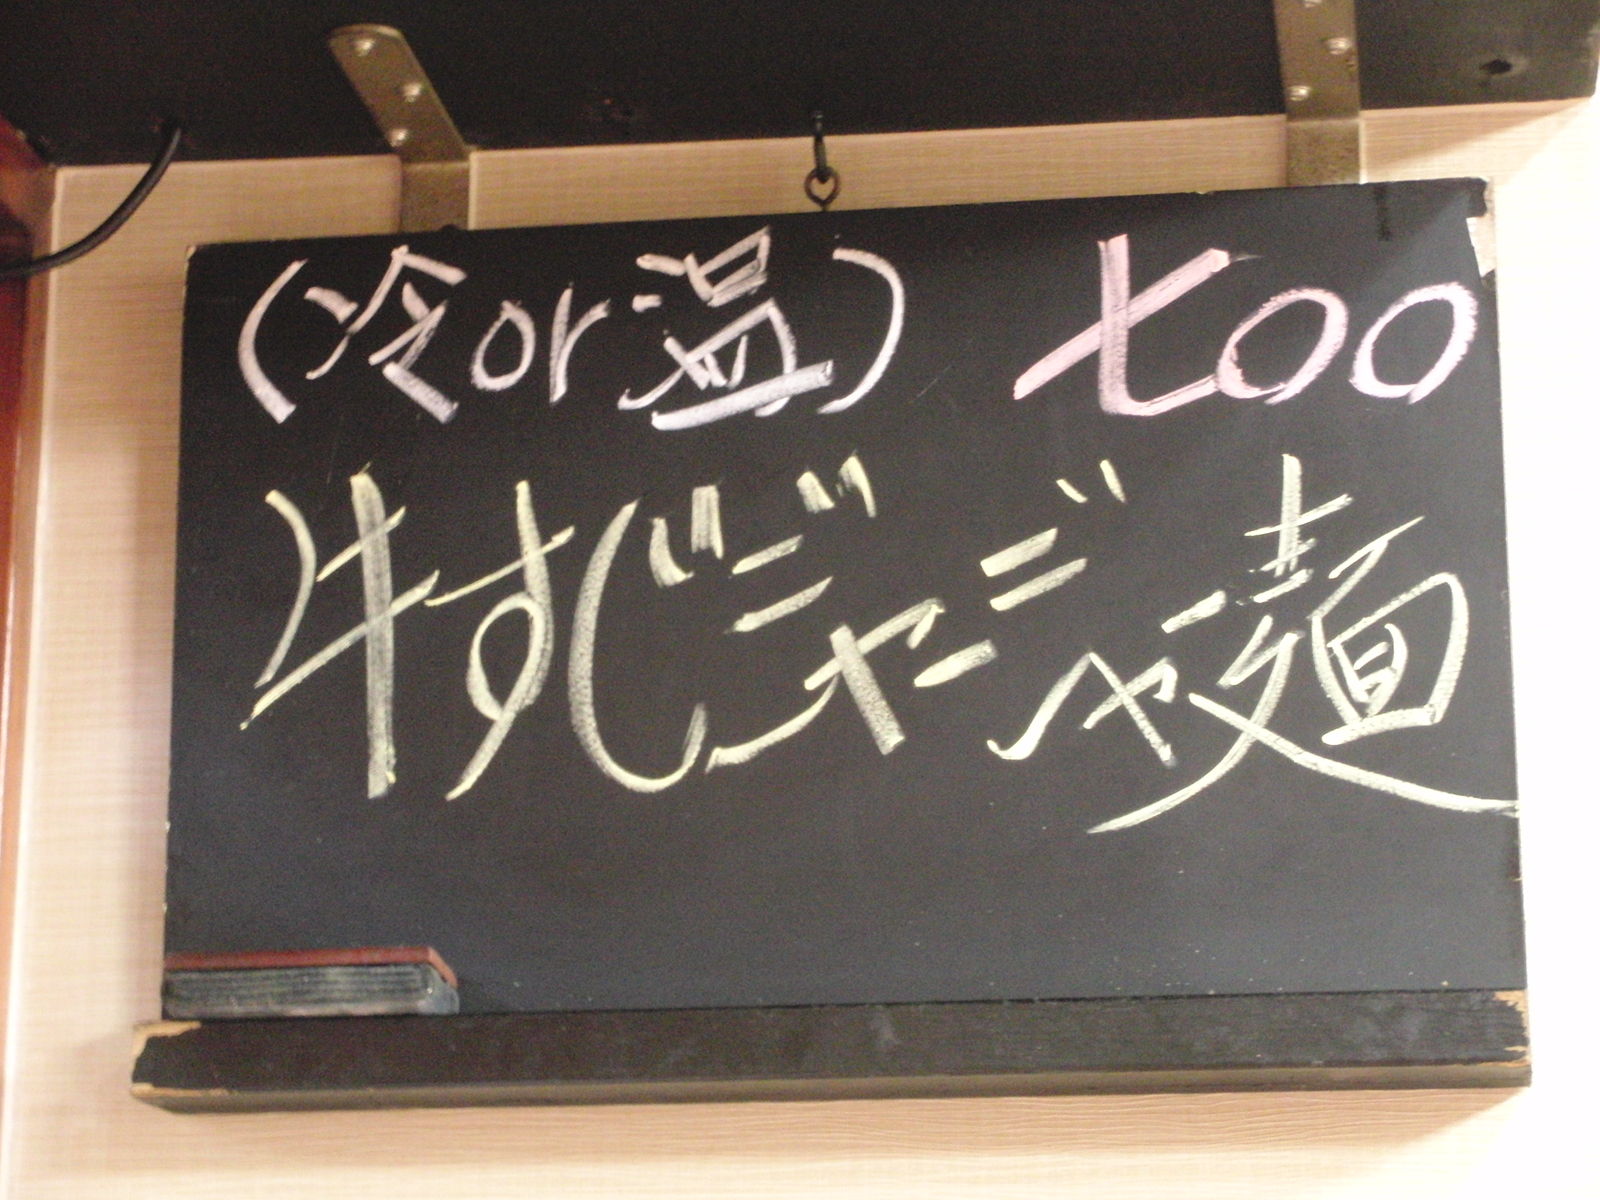 (冷or温) 七〇〇
牛すじジャージャ麺